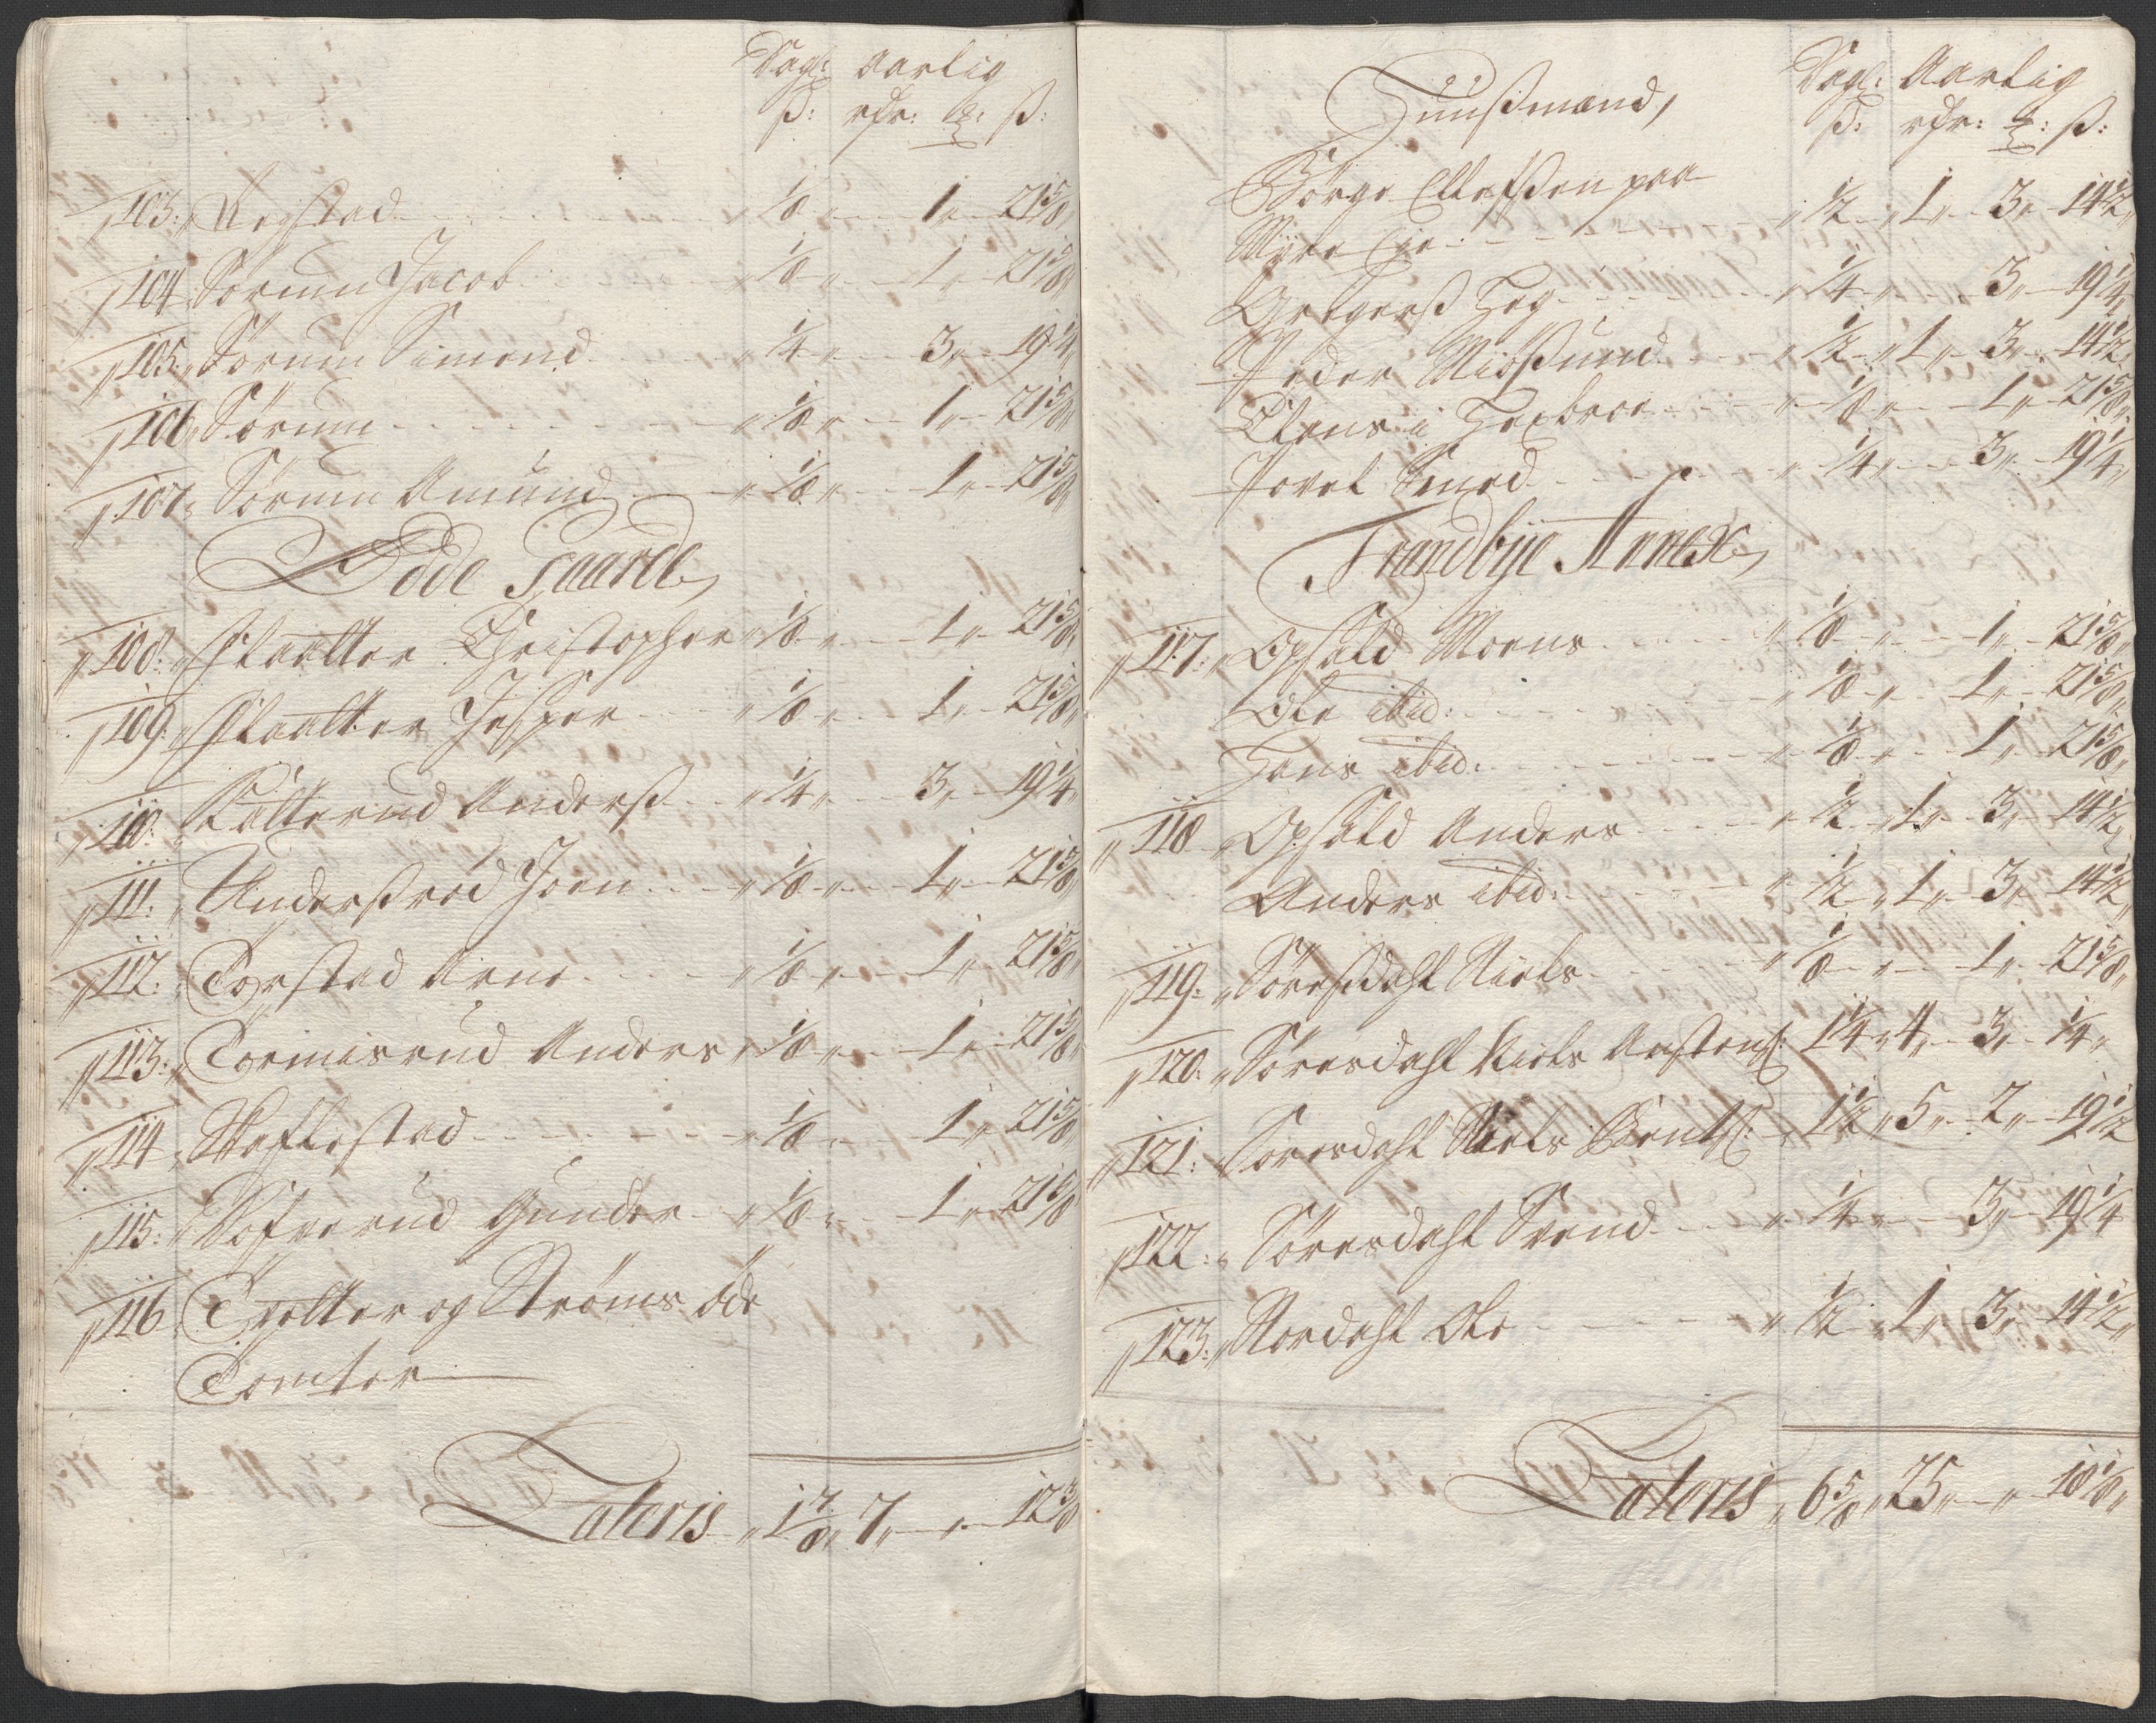 Dagl: Aarlig
ß: rdr: ß:
103: Rogstad 1/8 1 21 5/8
104 Sørum Jacob 1/8 1 21 5/8
105: Sørum Simend 1/4 3 19 1/4
106 Sørum 1/8 1 21 5/8
107 Sørum Amund 1/8 1 21 5/8
Øde Gaarde
108: Christopher 1/8 1 21 5/8
109: Jesper 1/8 1 21 5/8
110: Anderß 1/4 3 19 1/4
111: Anderßrød Joen 1/8 1 21 5/8
112: Torstad Arne 1/8 1 21 5/8
113: Tormisrud Anders 1/8 1 21 5/8
114 1/8 1 21 5/8
115: Gunder 1/8 1 21 5/8
116 og Strøms øde
Tomter
Lateris 1 7/8 7 12 3/8
Huußmænd,
Dagl: Aarlig
ß: rdr: ß:
Børge Ellefßen paa
Myre Eje 1/2 1 3 14 1/2
Gregerß 1/4 3 19 1/4
Peder Misßund 1/2 1 3 14 1/2
Clens i 1/8 1 21 5/8
Povel Smed 1/4 3 19 1/4
Trandbye Annex
117: Opsald Moens 1/8 1 21 5/8
Ole ibid: 1/8 1 21 5/8
Hans ibid: 1/8 1 21 5/8
118 Opsald Anders 1/2 1 3 14 1/2
Anders ibid: 1/2 1 3 14 1/2
119: Sørisdahl Niels 1/8 1 21 5/8
120: Sørisdahl Niels Austens: 1 1/4 4 3 1/4
121: Sørisdahl Niels Bents: 1 1/2 5 2 19 1/2
122: Sørisdahl Svend 1/4 3 19 1/4
123: Nordahl Ole 1/2 1 3 14 1/2
Lateris 6 5/8 25 18 1/8